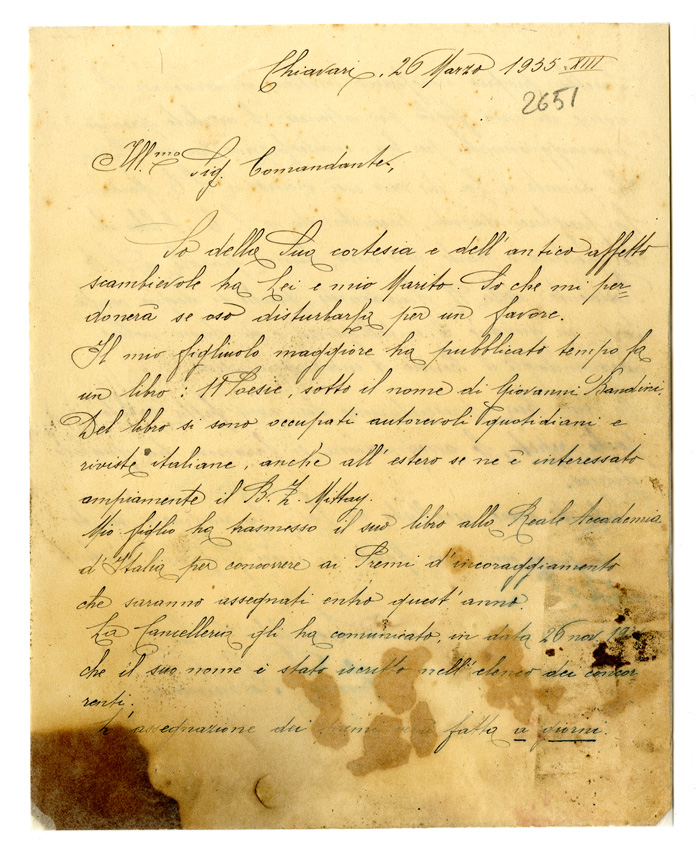 Chiavari, 26 Marzo 1935 XIII
2651
Ill.mo Sig. Comandante,
So della Sua cortesia e dell'antico affetto
scambievole fra Lei e mio Marito. So che mi per=
donerà se oso disturbarla per un favore.
Il mio figliuolo maggiore ha pubblicato tempo fa
un libro: 11 Poesie, sotto il nome di Giovanni Bandini.
Del libro si sono occupati autorevoli quotidiani e
riviste italiane, anche all'estero se ne è interessato
ampiamente il B. Z. Mittag.
Mio figlio ha trasmesso il suo libro alla Reale Accademia
d'Italia per concorrere ai Premi d'incoraggiamento
che saranno assegnati entro quest'anno.
La Cancelleria gli ha comunicato, in data 26 nov.
che il suo nome è stato iscritto nell'elenco dei concor
renti.
L'assegnazione dei premi sarà fatta a giorni.